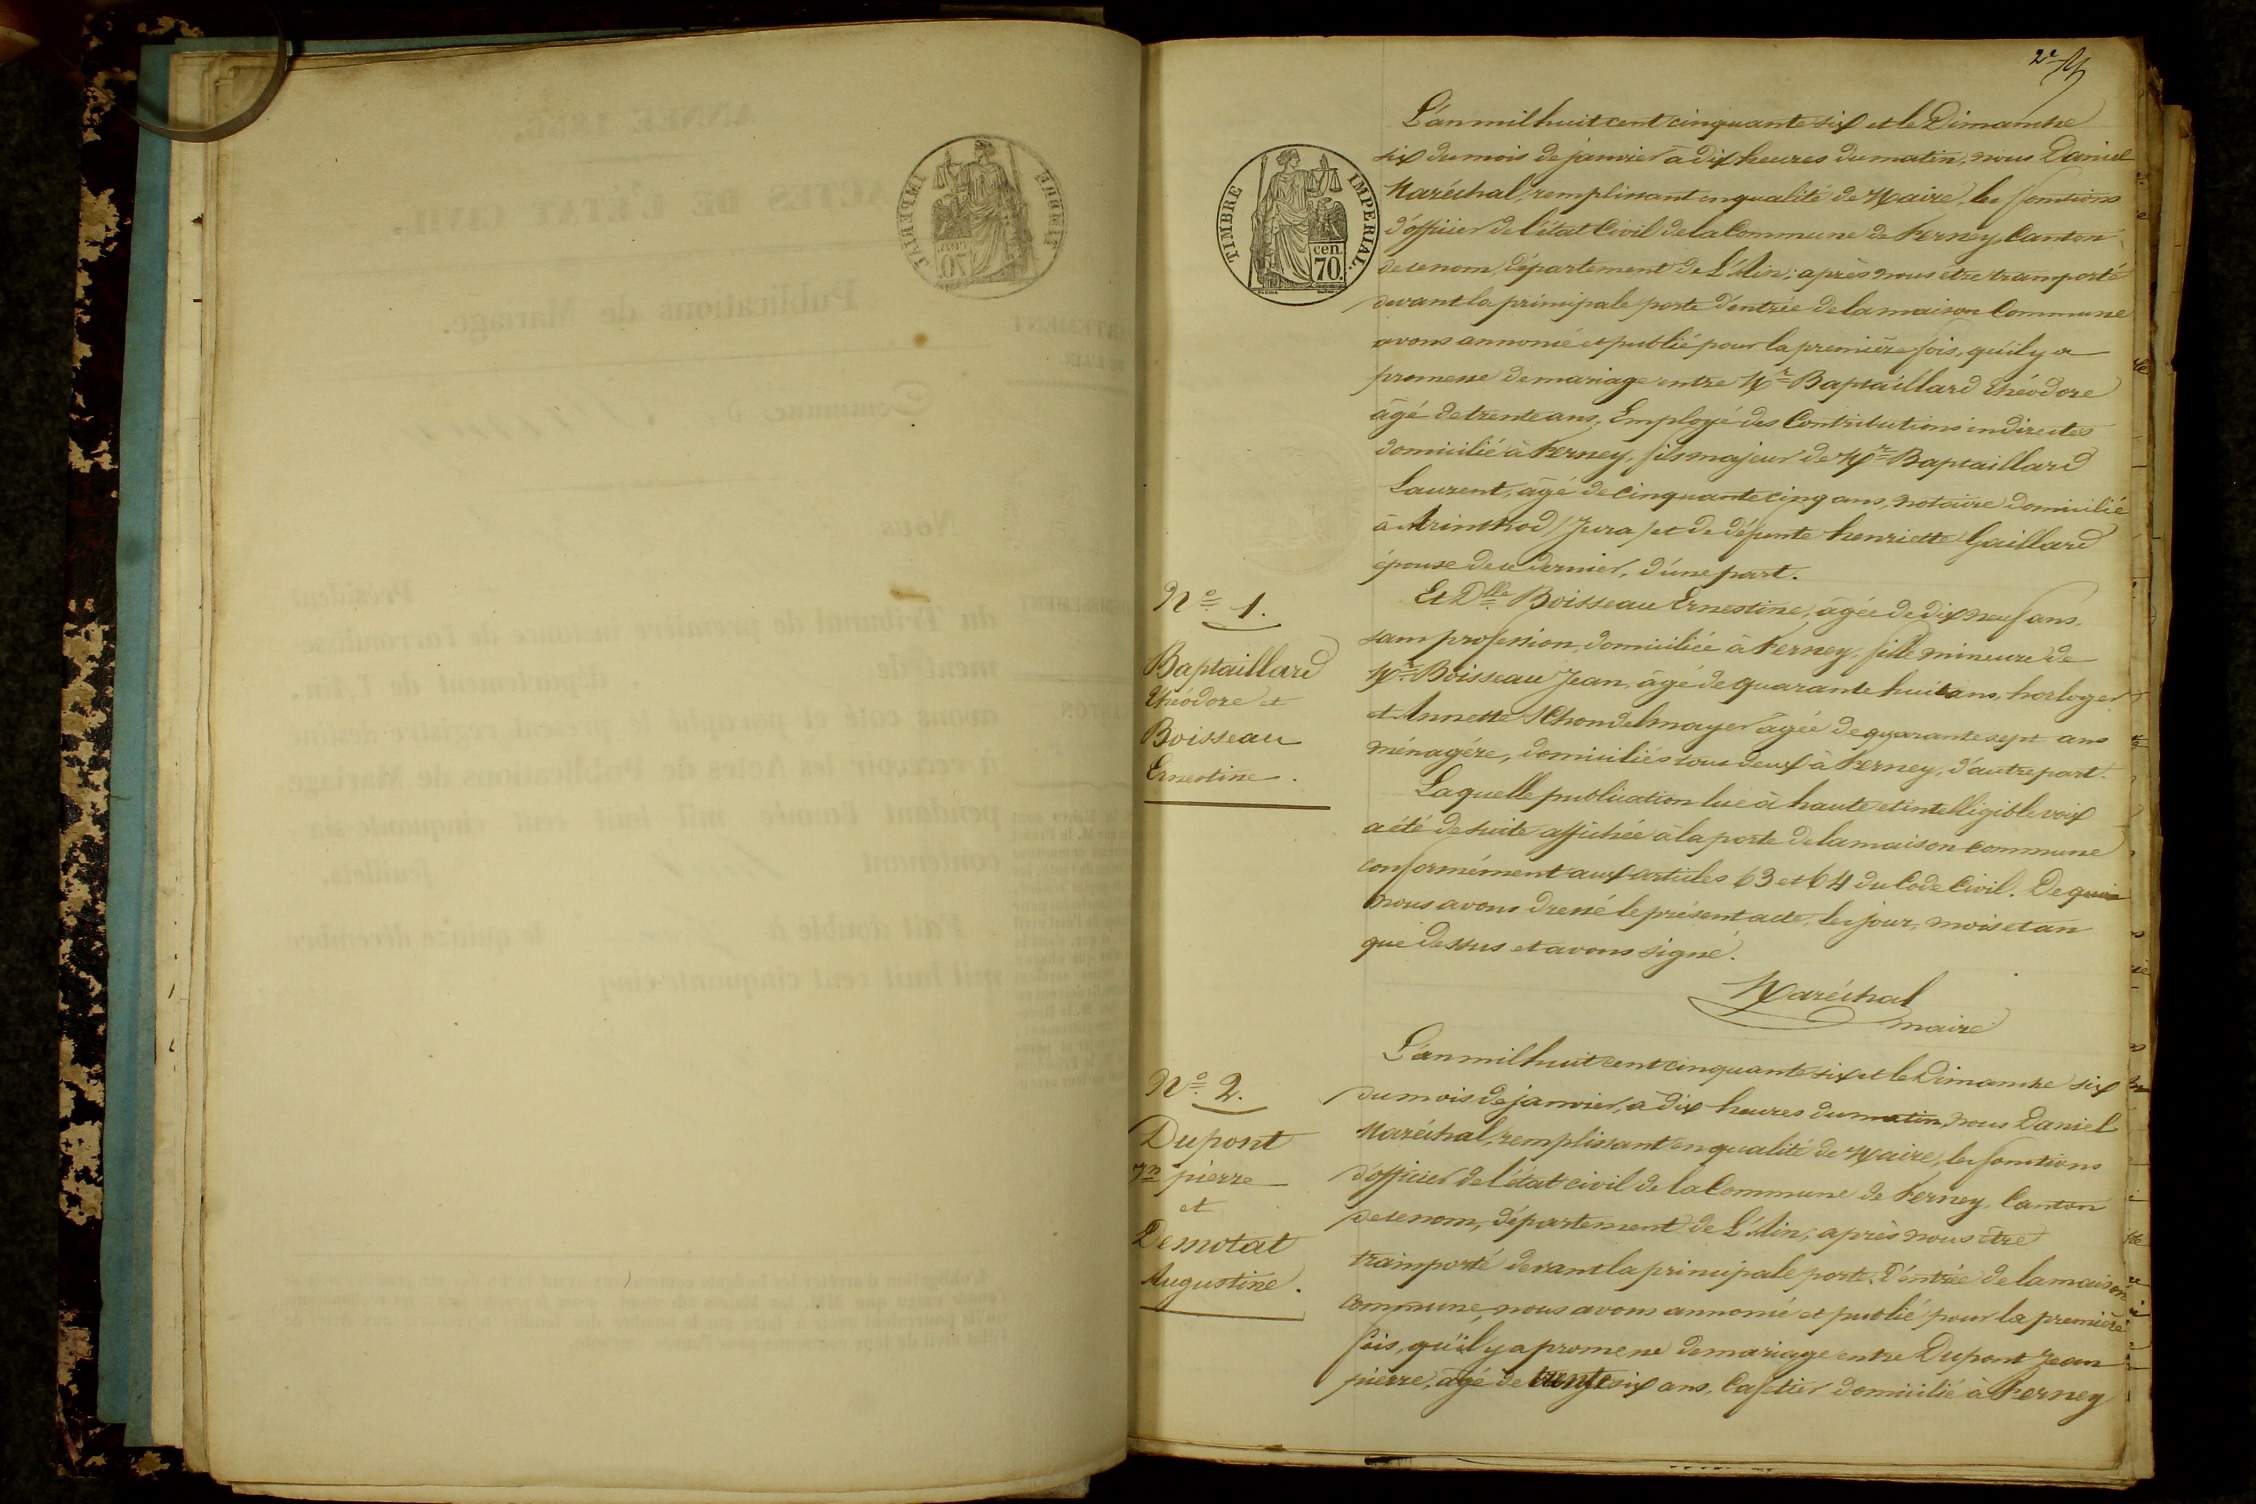 2e
TIMBRE IMPERIAL.
cen.
70.
L'an mil huit cent cinquante six et le Dimanche
six du mois de janvier à dix heures du matin, nous Daniel
Maréchal, remplissant en qualité de Maire, les fonctions
d'officier de l'état Civil de la Commune de Ferney, Canton
de ce nom, département de L'Ain; après nous être transporté
devant la principale porte d'entrée de la maison Commune
avons annoncé et publié pour la première fois, qu'il y a
promesse de mariage entre Mr Baptaillard théodore
âgé de trente ans, Employé des Contributions indirectes
domicilié à Ferney, fils majeur de Mr Baptaillard
Laurent, âgé de cinquante cinq ans, notaire domicilié
à Arinthod (Jura) et de défunte henriette Gaillard
épouse de ce dernier, d'une part.
Et Dlle Boisseau Ernestine, âgée de dix neuf ans,
sans profession, domiciliée à Ferney, fille mineure de
Mr Boisseau Jean, âgé de quarante huit ans, horloger
et Annette Schondelmayer âgée de quarante sept ans
ménagère, domiciliés tous deux à Ferney, d'autre part.
Laquelle publication lue à haute et intelligible voix
a été de suite affichée à la porte de la maison commune
conformément aux articles 63 et 64 du Code Civil. De quoi
nous avons dressé le présent acte, les jour, mois et an
que dessus et avons signé.
Maréchal
maire
No 1.
Baptaillard
théodore et
Boisseau
Ernestine.
L'an mil huit cent cinquante six et le Dimanche six
du mois de janvier, à dix heures du matin, nous Daniel
Maréchal, remplissant en qualité de Maire, les fonctions
d'officier de l'état civil de la Commune de Ferney, Canton
de ce nom, département de L'Ain, après nous être
transporté devant la principale porte d'entrée de la maison
commune, nous avons annoncé et publié pour la première
fois, qu'il y a promesse de mariage entre Dupont Jean
pierre, âgé de trente six ans, Cafetier domicilié à Ferney
No 2.
Dupont
Jn pierre
et
Demotat
Augustine.